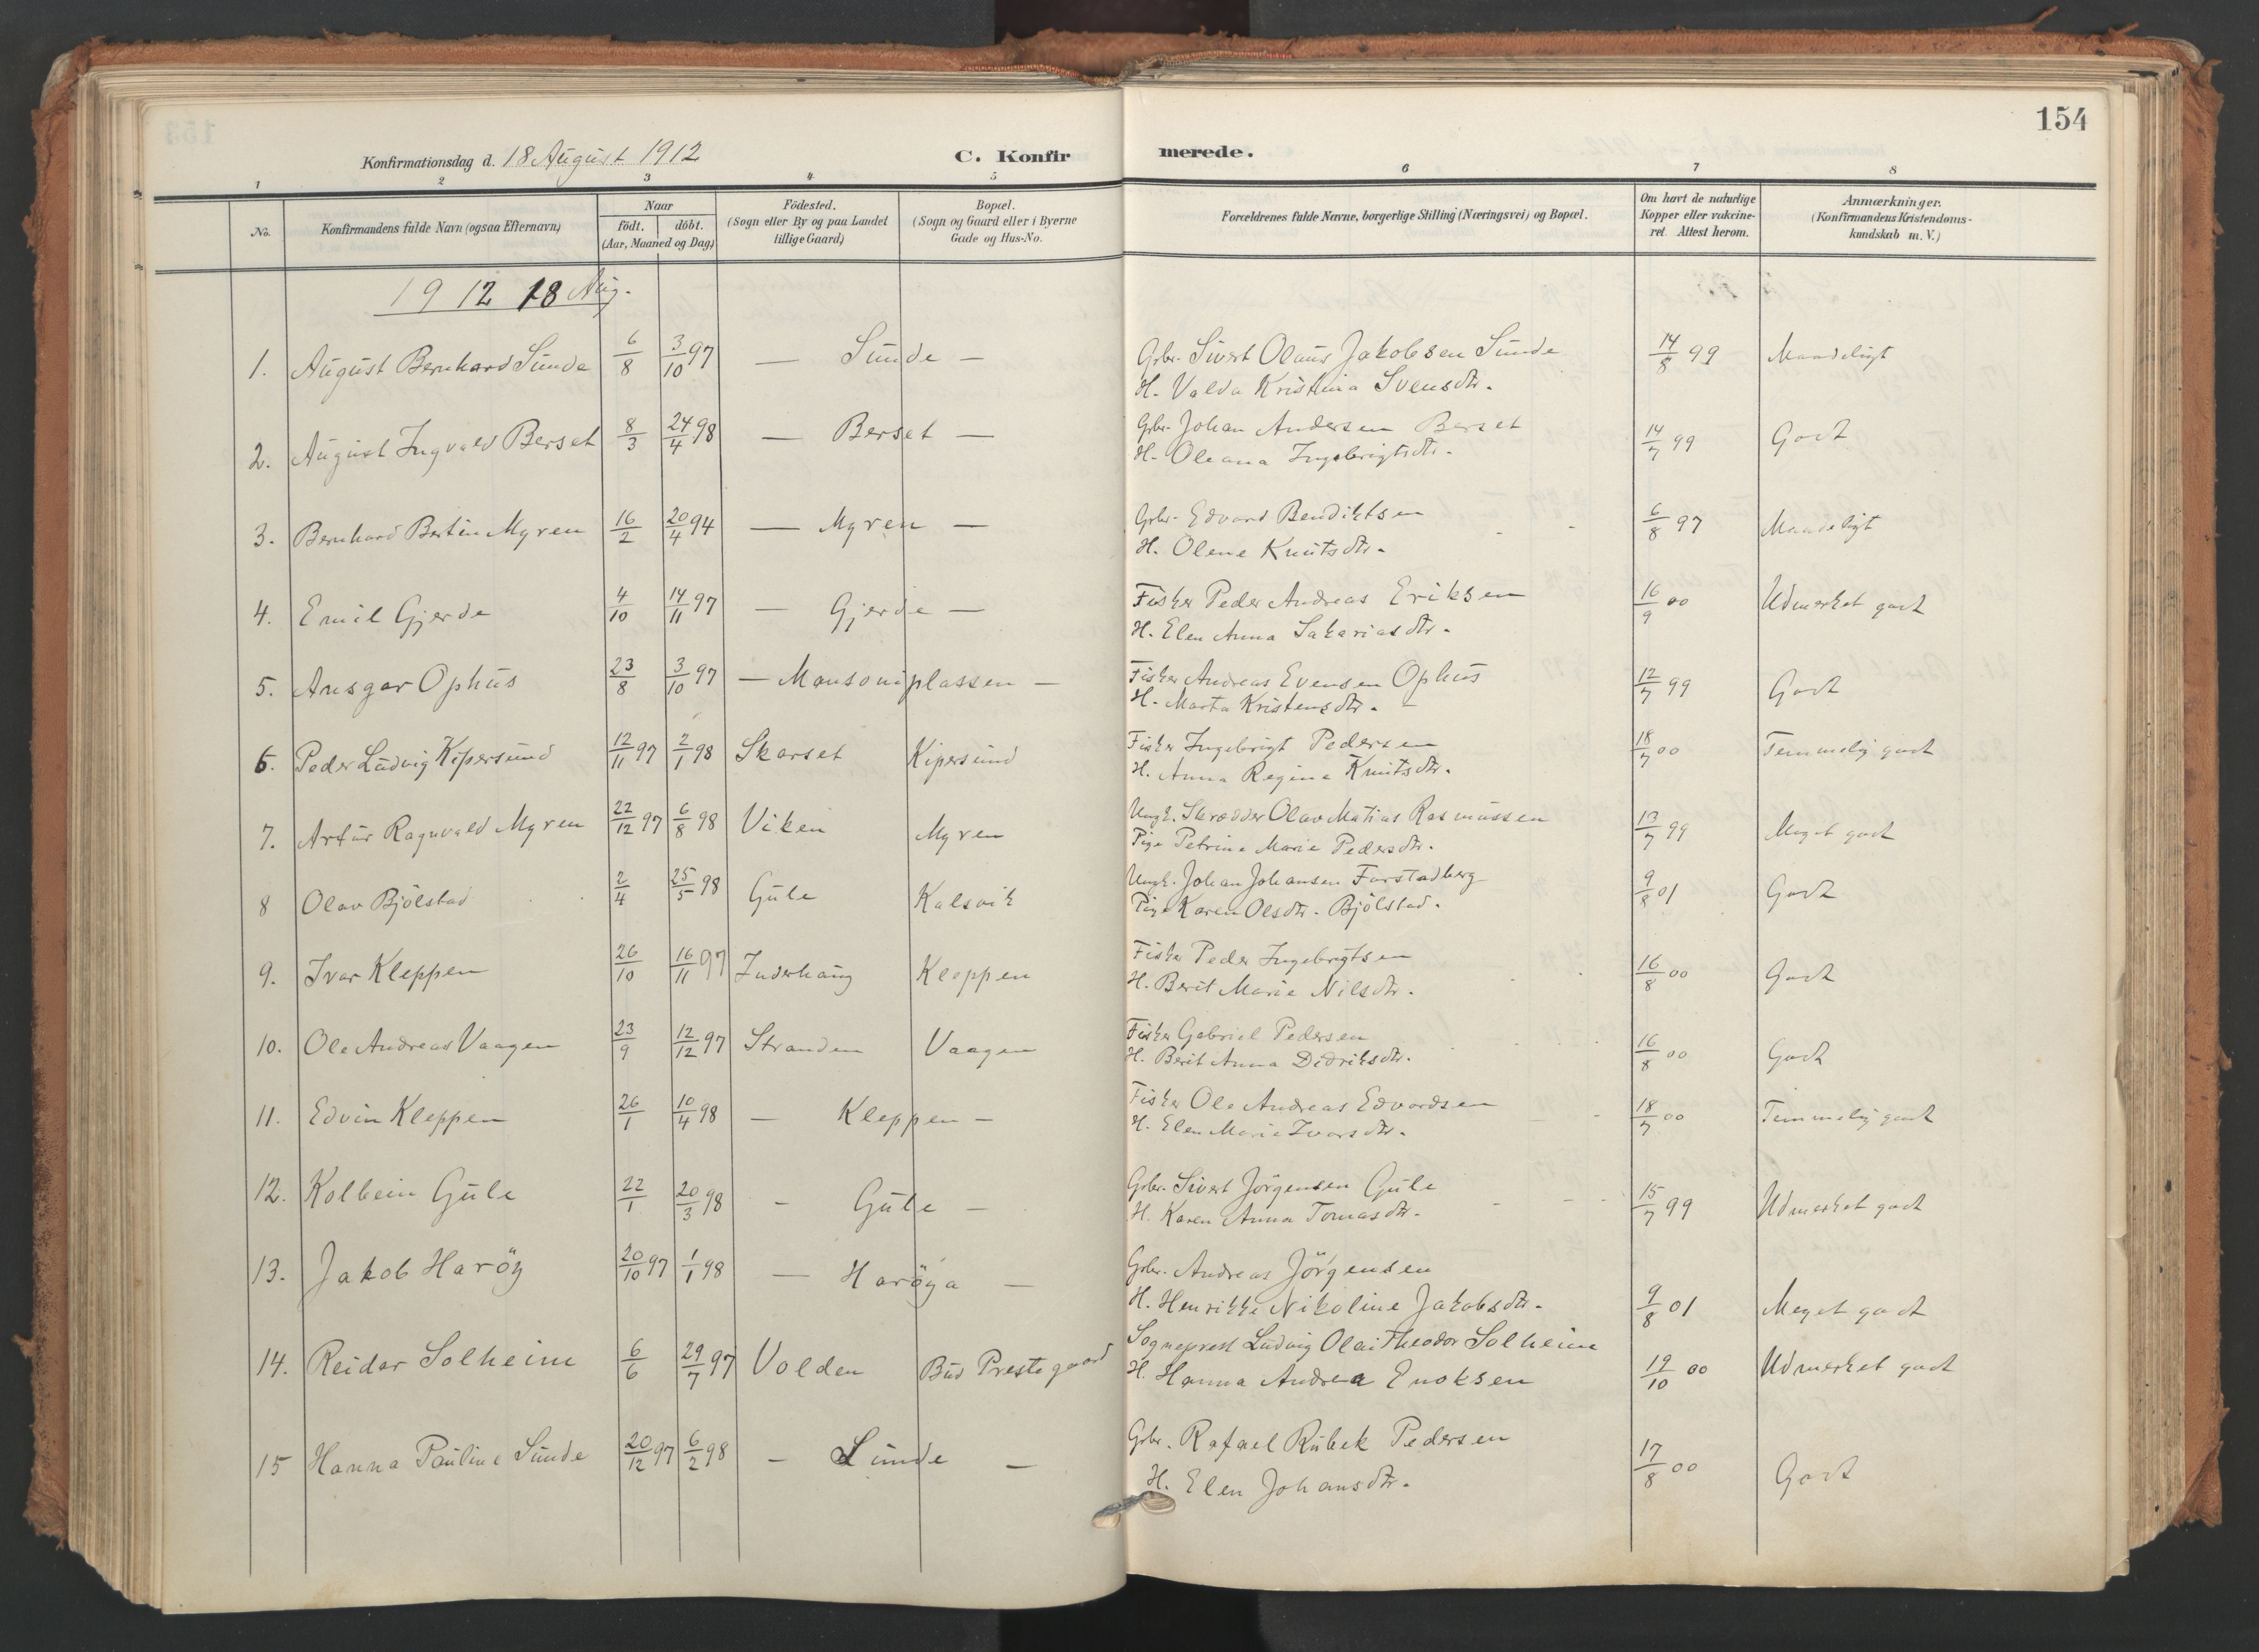 154
Konfirmationsdag d. 18 August 1912 C. Konfirmerede.
1 2 3 4 5 6 7 8
No. Konfirmandens fulde Navn (ogsaa Efternavn) Naar födt. döbt. (Aar, Maaned og Dag) Födested. (Sogn eller By og paa Landet tillige Gaard) Bopæl. (Sogn og Gaard eller i Byerne Gade og Hus-No. Forældrenes fulde Navne, borgerlige Stilling (Næringsvei) og Bopæl. Om havt de naturlige Kopper eller vakcineret. Attest herom. Anmærkninger. (Konfirmandens Kristendomskundskab m. V.)
1912 18 Aug.
1. August Bernhard Sunde 6/8 3/10 97 — Sunde — Gbr. Sivert Olaus Jakobsen Sunde 14/8 99 Maadeligt
H. Valda Kristina Svensdtr.
2. August Ingvald Berset 8/3 24/4 98 — Berset — Gbr. Johan Andersen Berset 14/7 99 Godt
H. Oleana Ingebrigtsdtr.
3. Bernhard Bertin Myren 16/2 20/4 94 — Myren — Gbr. Edvard Bendiktsen 6/8 97 Maadeligt
H. Olene Knutsdtr.
4. Emil Gjerde 4/10 14/11 97 — Gjerde — Fisker Peder Andreas Eriksen 16/9 00 Udmerket godt
H. Elen Anna Sakariasdtr.
5. Ansgar Ophus 23/8 3/10 97 — Monsoniplassen — Fisker Andreas Evensen Ophus 12/7 99 Godt
H. Marta Kristensdtr.
6. Peder Ludvig Kipersund 12/11 97 2/1 98 Skarset Kipersund Fisker Ingebrigt Pedersen 18/7 00 Temmelig godt
H. Anna Regine Knutsdtr.
7. Artur Ragnvald Myren 22/12 97 6/8 98 Viken Myren Ungk. Skrædder Olav Matias Rasmussen 13/7 99 Meget godt
Pige Petrine Marie Pedersdtr.
8 Olav Bjölstad 2/4 25/5 98 Gule Kalsvik Ungk. Johan Johansen Farstadberg 9/8 01 Godt
Pige Karen Olsdtr. Bjölstad.
9. Ivar Kleppen 26/10 16/11 97 Inderhaug Kleppen Fisker Peder Ingebrigtsen 16/8 00 Godt
H. Berit Marie Nilsdtr.
10. Ole Andreas Vaagen 23/9 12/12 97 Stranden Vaagen Fisker Gabriel Pedersen 16/8 00 Godt
H. Berit Anna Didriksdtr.
11. Edvin Kleppen 26/1 10/4 98 — Kleppen — Fisker Ole Andreas Edvardsen 18/7 00 Temmelig godt
H. Elen Marie Ivarsdtr.
12. Kolbein Gule 22/1 20/3 98 - Gule — Gbr. Sivert Jörgensen Gule 15/7 99 Udmerket godt
H. Karen Anna Tomasdtr.
13. Jakob Haröy 20/10 97 1/1 98 — Haröya — Gbr. Andreas Jörgensen 9/8 01 Meget godt
H. Henrikke Nikoline Jakobsdtr.
14. Reidar Solheim 6/6 29/7 97 Volden Bud Prestegaard Sogneprest Ludvig Olai Theodor Solheim 19/10 00 Udmerket godt
H. Hanna Andrea Enoksen
15 Hanna Pauline Sunde 20/12 97 6/2 98 - Sunde — Gbr. Rafael Rubek Pedersen 17/8 00 Godt
H. Elen Johansdtr.